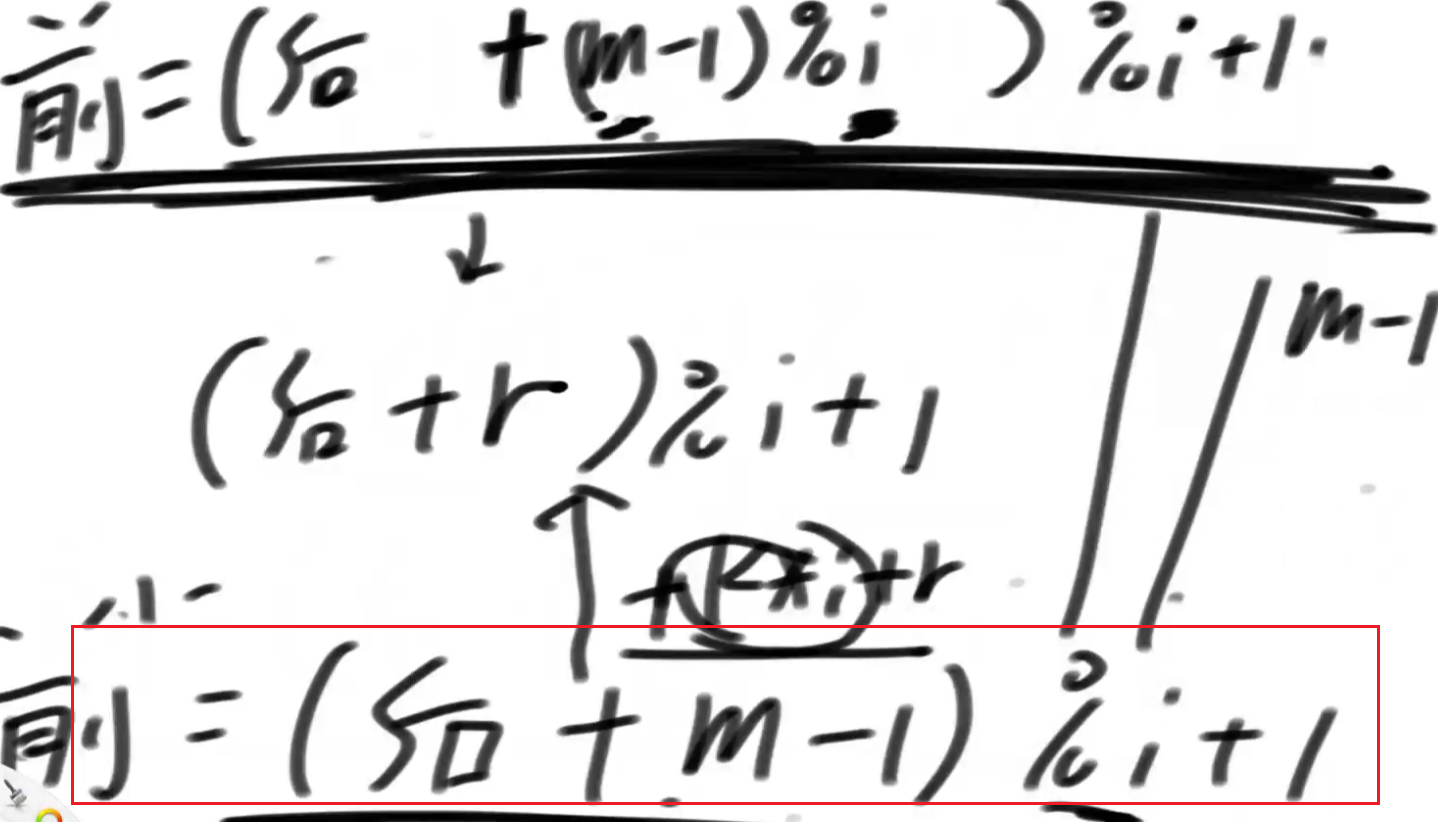 前=(后 +(m-1)%i )%i+1
m-1
(后+r)%i+1
+k*i+r
前=(后+m-1)%i+1